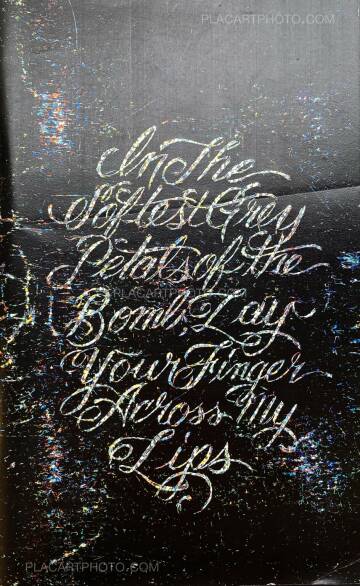 PLACARTPHOTO.COM
In The
Softest Grey
Petals of the
PLACARTPHOTO.COM
Bomb, Lay
Your Finger
Across My
Lips
PLACARTPHOTO.COM